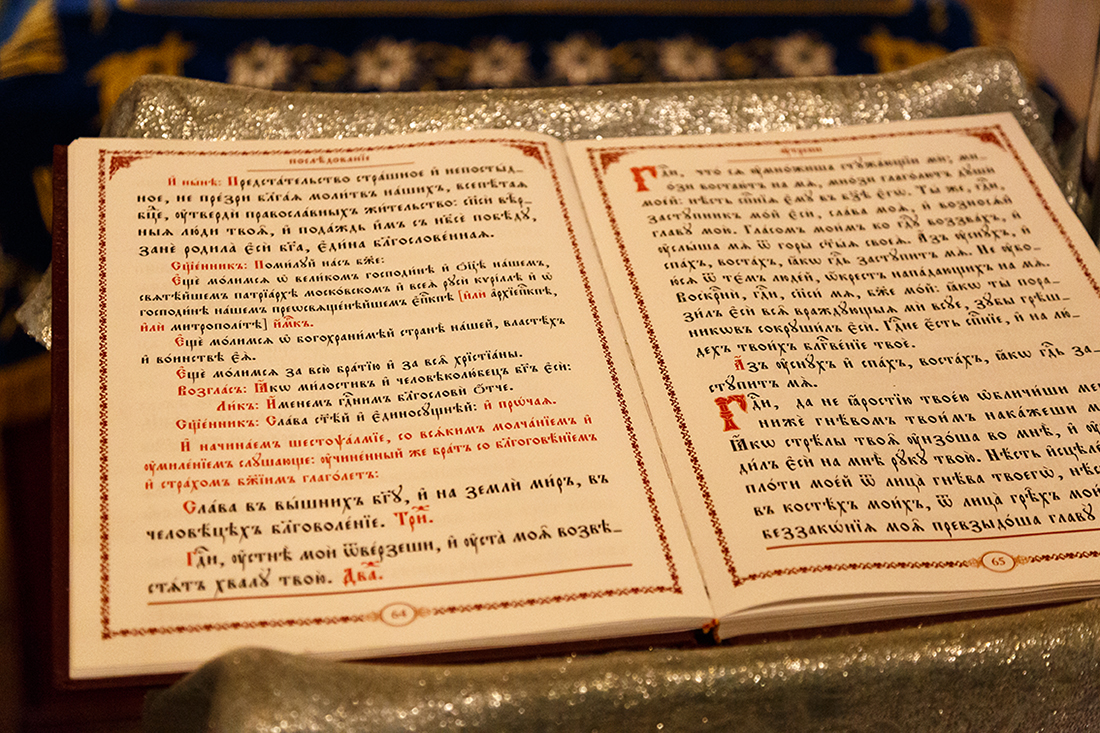 послѣдованїе
И҆ ны́нѣ: Предста́тельство стра́шное и҆ непосты́д_
ное, не пре́зри бл҃га́я моли́твъ на́шихъ, всепѣ́таѧ
бц҃е, ᲂу҆твердѝ правосла́вныхъ жи́тельство: сп҃сѝ вѣ́р_
ныѧ лю́ди твоѧ̑, и҆ пода́ждь и҆̀мъ съ нб҃сѐ побѣ́ду,
занѐ родила̀ є҆сѝ бг҃а, є҆ди́на бл҃гослове́ннаѧ.
Сщ҃е́нникъ: Поми́луй на́съ бж҃е:
Є҆щѐ мо́лимсѧ ѡ҆ вели́комъ господи́нѣ и҆ ѻ҆ц҃ѣ̀ на́шемъ,
свѧтѣ́йшемъ патрїа́рхѣ моско́вскомъ и҆ всеѧ̀ рꙋсѝ кѷрі́ллѣ и҆ ѡ҆
господи́нѣ на́шемъ преѡсвѧще́ннѣйшемъ є҆пⷭ҇кпѣ [и҆лѝ а҆рхїепⷭ҇кпѣ,
и҆лѝ митрополі́тѣ] и҆́м҃къ.
Є҆щѐ мо́лимсѧ ѡ҆ богохрани́мѣй странѣ̀ на́шей, власте́хъ
и҆ во́инствѣ є҆ѧ̀.
Є҆щѐ мо́лимсѧ за всю̀ бра́тїю и҆ за всѧ̑ хрїстїа́ны.
Возгла́съ: Ꙗ҆́кѡ ми́лостивъ и҆ человѣколю́бецъ бг҃ъ є҆сѝ:
Ли́къ: И҆́менемъ гдⷭ҇нимъ благословѝ ѻ҆́тче.
Сщ҃е́нникъ: Сла́ва ст҃ѣ́й и҆ є҆диносꙋ́щнѣй: и҆ прѡ́чаѧ.
И҆ начина́емъ шестоѱа́лмїе, со всѧ́кимъ молча́нїемъ и҆
ᲂу҆миле́нїемъ слꙋ́шающе: ᲂу҆чине́нный же бра́тъ со бл҃гоговѣ́нїемъ
и҆ стра́хомъ бж҃їимъ глаго́летъ:
Сла́ва въ вы́шнихъ бг҃ꙋ, и҆ на землѝ ми́ръ, въ
человѣ́цѣхъ бл҃говоле́нїе. Три́ж.
Гдⷭ҇и, ᲂу҆стнѣ̀ моѝ ѿве́рзеши, и҆ ᲂу҆ста̀ моѧ̑ возвѣ_
стѧ́тъ хвалꙋ̀ твою̀. Два́ж.
64
ᲂу҆́трени
Гдⷭ҇и, что́ сѧ ᲂу҆мно́жиша стꙋжа́ющїи ми; мно́_
ѕи востаю́тъ на мѧ̀, мно́ѕи глаго́лютъ дꙋшѝ
мое́й: нѣ́сть сп҃се́нїѧ є҆мꙋ̀ въ бз҃ѣ є҆гѡ̀. Ты́ же, гдⷭ҇и,
застꙋ́пникъ мо́й є҆сѝ, сла́ва моѧ̀, и҆ возносѧ́й
главꙋ̀ мою̀. Гла́сомъ мои́мъ ко гдⷭ҇ꙋ воззва́хъ, и҆
ᲂу҆слы́ша мѧ̀ ѿ горы̀ ст҃ы́ѧ своеѧ̀. А҆́зъ ᲂу҆снꙋ́хъ, и҆
спа́хъ, воста́хъ, ꙗ҆́кѡ гдⷭ҇ь застꙋ́питъ мѧ̀. Не ᲂу҆бо_
ю́сѧ ѿ те́мъ люде́й, ѡ҆́крестъ напа́дающихъ на мѧ̀.
Воскрⷭ҇нѝ, гдⷭ҇и, сп҃сѝ мѧ̀, бж҃е мо́й: ꙗ҆́кѡ ты̀ пора_
зи́лъ є҆сѝ всѧ̑ враждꙋ́ющыѧ мѝ всꙋ́е, зꙋ́бы грѣ́ш_
никѡвъ сокрꙋши́лъ є҆сѝ. Гдⷭ҇не є҆́сть сп҃се́нїе, и҆ на лю́_
дехъ твои́хъ блⷭ҇ве́нїе твоѐ.
А҆́зъ ᲂу҆снꙋ́хъ и҆ спа́хъ, воста́хъ, ꙗ҆́кѡ гдⷭ҇ь за_
стꙋ́питъ мѧ̀.
Гдⷭ҇и, да не ꙗ҆́ростїю твое́ю ѡ҆бличи́ши менѐ
нижѐ гнѣ́вомъ твои́мъ нака́жеши
Ꙗ҆́кѡ стрѣ́лы твоѧ̑ ᲂу҆нзо́ша во мнѣ̀, и҆
ди́лъ є҆сѝ на мнѣ̀ рꙋ́кꙋ твою̀. Нѣ́сть и҆сцѣле́
пло́ти мое́й ѿ лица̀ гнѣ́ва твоегѡ̀, нѣ́с
въ косте́хъ мои́хъ, ѿ лица̀ грѣ̑хъ мои́
беззакѡ́нїѧ моѧ̑ превзыдо́ша главꙋ̀
65